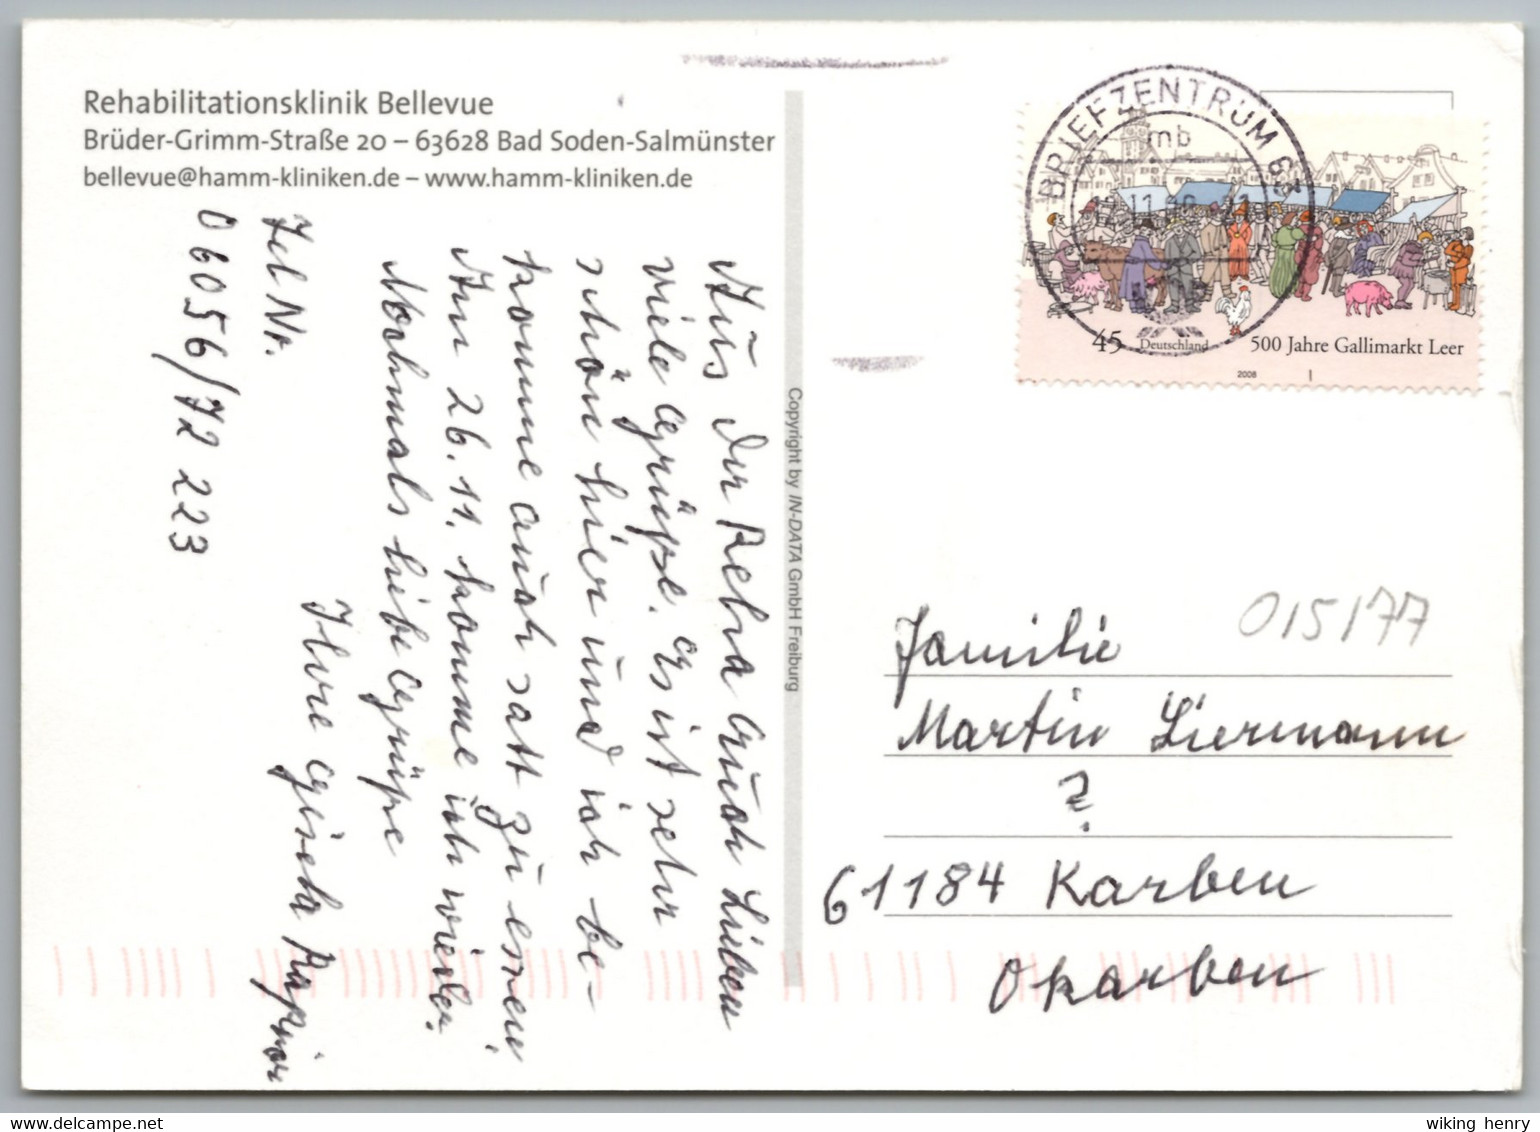 Rehabilitationsklinik Bellevue
Brüder-Grimm-Straße 20 – 63628 Bad Soden-Salmünster
bellevue@hamm-kliniken.de – www.hamm-kliniken.de
Aus der Reha Euch Lieben
viele Grüße. Es ist sehr
schön hier und ich be-
komme auch satt zu essen,
Am 26.11. komme ich wieder.
Nochmals liebe Grüße
Ihre Gisela
Tel Nr.
06056/72 223
Copyright by IN-DATA GmbH Freiburg
BRIEFZENTRUM 63
mb
45 Deutschland
500 Jahre Gallimarkt Leer
2008
015177
Familie
Martin Liermann
?
61184 Karben
Okarben
wiking henry